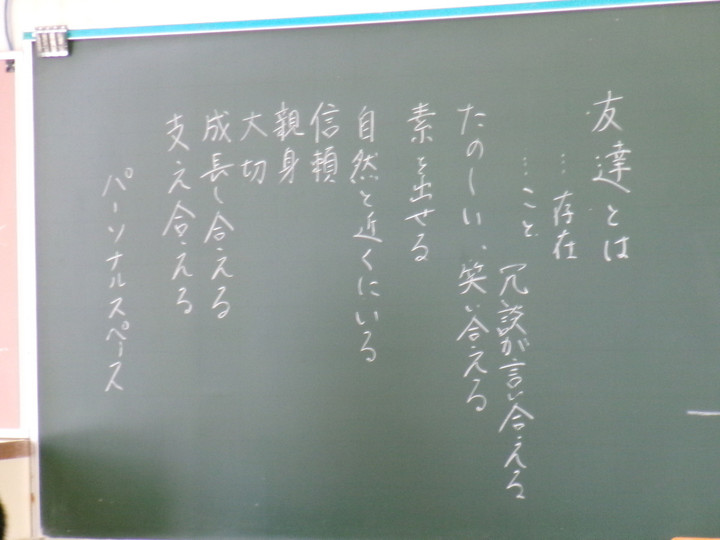 友達とは
…存在
…こと
冗談が言い合える
たのしい、笑い合える
素を出せる
自然と近くにいる
信頼
親身
大切
成長し合える
支え合える
パーソナルスペース